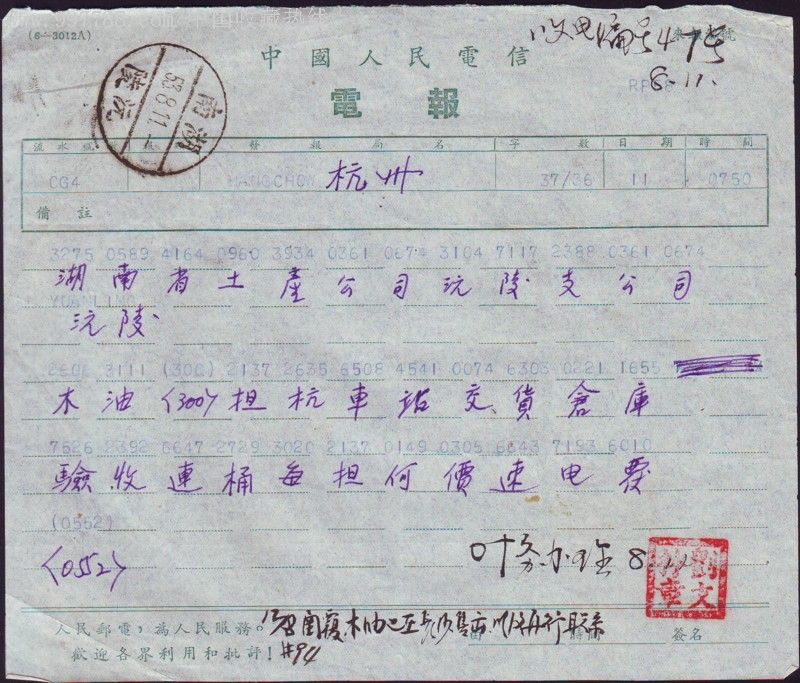 (6—3012A)
中國人民電信
收电編号475
8.11.
電報
湖南
53.8.11.
沅陵
流水號 發報局名 字數 日期 時間
CG4 HANGCHOW 杭州 37/36 11 0750
備註
3275 0589 4164 0960 3934 0361 0674 3104 7117 2388 0361 0674
湖南省土產公司沅陵支公司
YUANLING
沅陵
2606 3111 (300) 2137 2635 6508 4541 0074 6303 0221 1655
木油〈300〉担杭車站交貨倉庫
7526 2392 6647 2729 3020 2137 0149 0305 6643 7193 6010
驗收連桶每担何價速电覆
(0552)
〈0552〉
8.11
劉文
章
人民郵電，為人民服務。
歡迎各界利用和批評！
#94
簽名